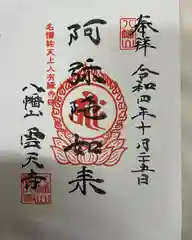 奉拝
令和四年十月二五日
阿弥陀如来
名僧祐天上人有縁寺院
八幡山
雲天寺